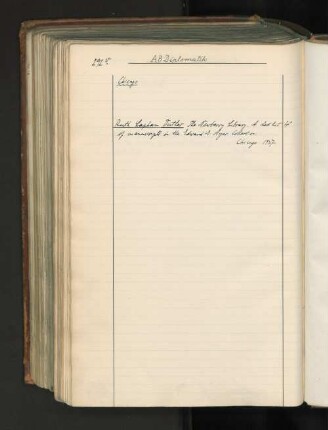 AB Diplomatik
Chicago
Ruth Lapham Butler, The Newberry Library. A check list
of manuscripts in the Edward E. Ayer Collection.
Chicago 1937.